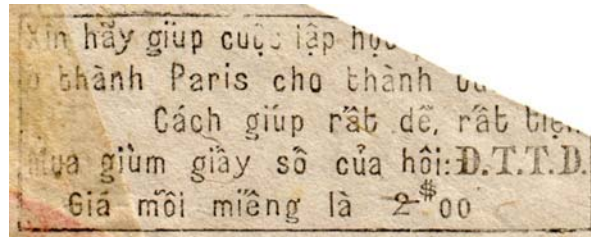 Xin hãy giúp cuộc lập học
ở thành Paris cho thành
Cách giúp rất dễ, rất tiện
Mua giùm giấy số của hội: Đ.T.T.D.
Giá mỗi miếng là 2$00